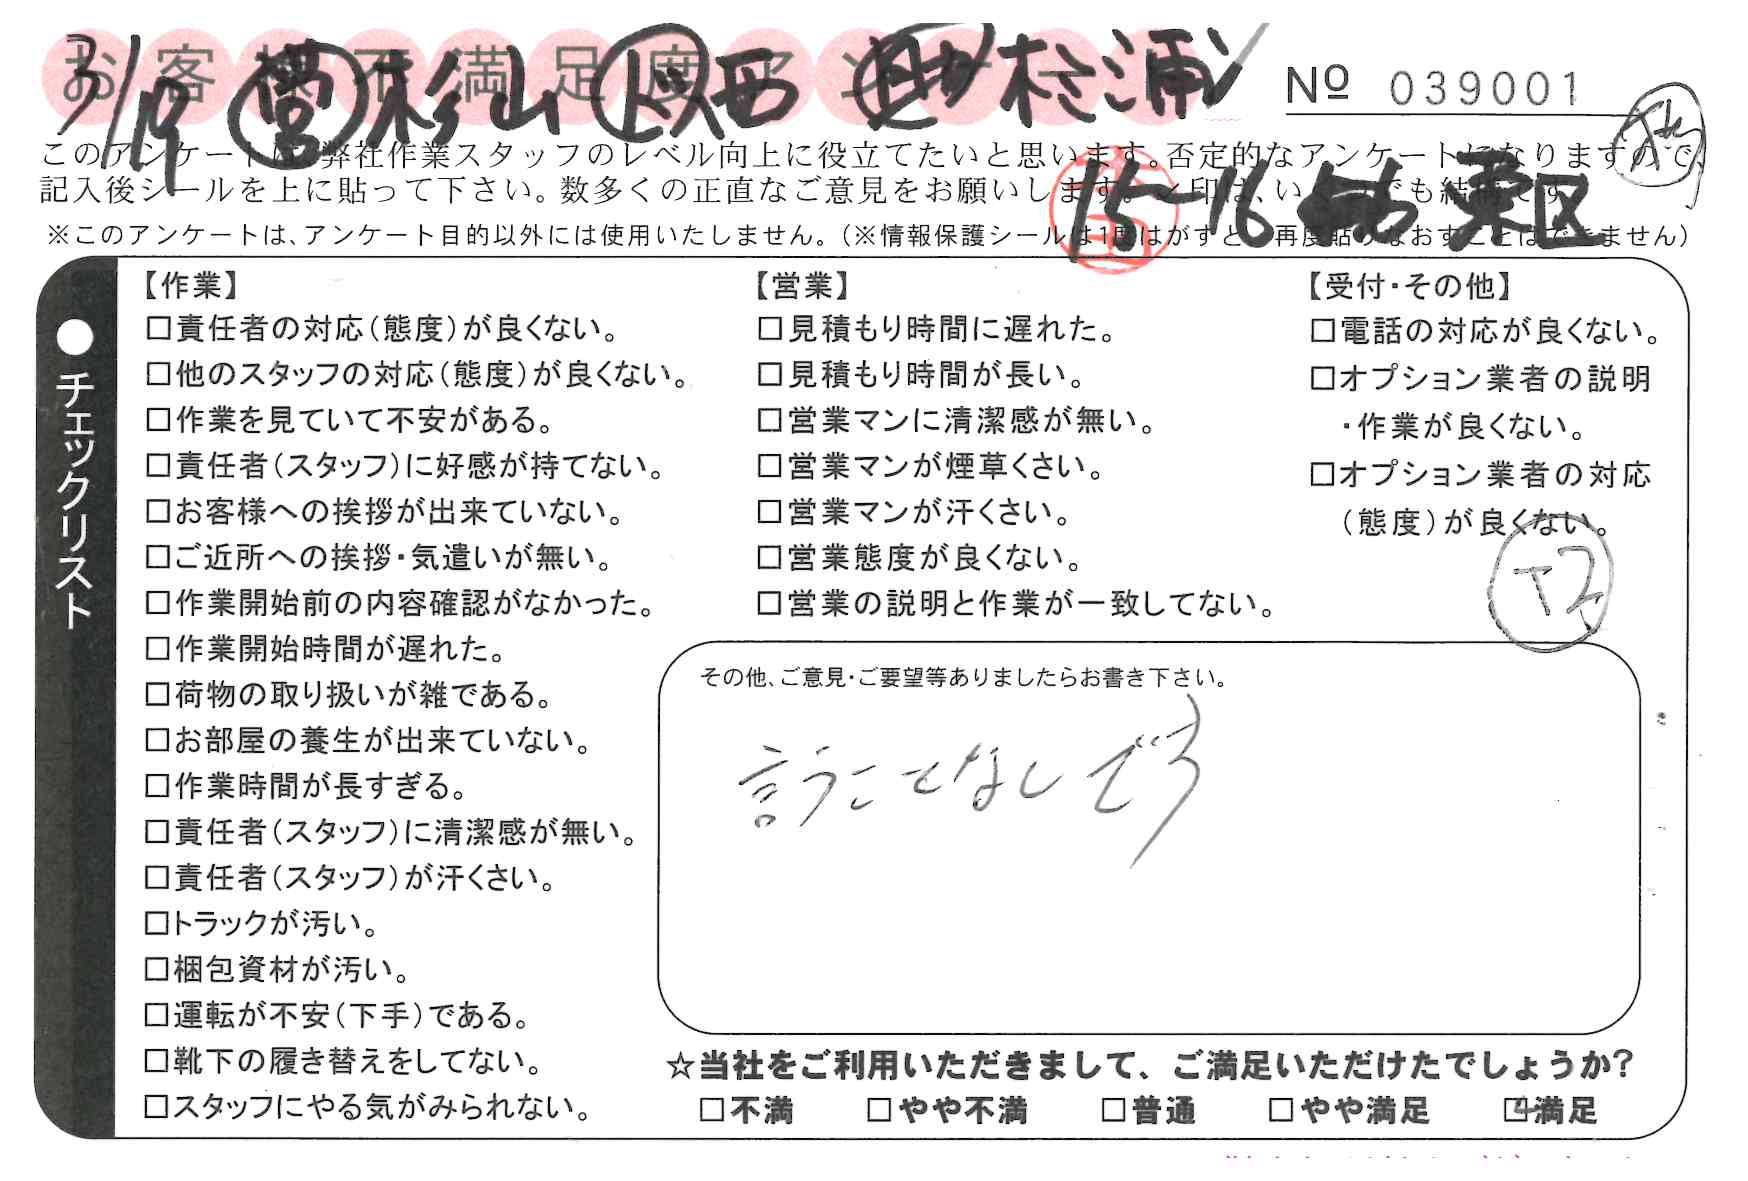 お客様不満足度アンケート
3/19 営 杉山 西 助 松浦
№ 039001
このアンケートは、弊社作業スタッフのレベル向上に役立てたいと思います。否定的なアンケートになりますので、
記入後シールを上に貼って下さい。数多くの正直なご意見をお願いします。レ印は、いくつでも結構です。
15-16 区
※このアンケートは、アンケート目的以外には使用いたしません。（※情報保護シールは1度はがすと、再度貼りなおすことはできません）
●チェックリスト
【作業】
□責任者の対応（態度）が良くない。
□他のスタッフの対応（態度）が良くない。
□作業を見ていて不安がある。
□責任者（スタッフ）に好感が持てない。
□お客様への挨拶が出来ていない。
□ご近所への挨拶・気遣いが無い。
□作業開始前の内容確認がなかった。
□作業開始時間が遅れた。
□荷物の取り扱いが雑である。
□お部屋の養生が出来ていない。
□作業時間が長すぎる。
□責任者（スタッフ）に清潔感が無い。
□責任者（スタッフ）が汗くさい。
□トラックが汚い。
□梱包資材が汚い。
□運転が不安（下手）である。
□靴下の履き替えをしてない。
□スタッフにやる気がみられない。
【営業】
□見積もり時間に遅れた。
□見積もり時間が長い。
□営業マンに清潔感が無い。
□営業マンが煙草くさい。
□営業マンが汗くさい。
□営業態度が良くない。
□営業の説明と作業が一致してない。
【受付・その他】
□電話の対応が良くない。
□オプション業者の説明
・作業が良くない。
□オプション業者の対応
（態度）が良くない。
T2
その他、ご意見・ご要望等ありましたらお書き下さい。
言うことなしです
☆当社をご利用いただきまして、ご満足いただけたでしょうか？
□不満 □やや不満 □普通 □やや満足 ☑満足